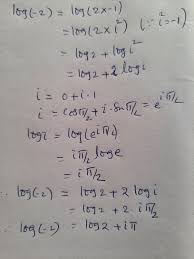 log(-2) = log(2×-1)
= log(2×i²) (∵ i²=-1)
= log2 + log i²
= log2 + 2 log i
i = 0+i·1
i = cosπ/2 + i·Sinπ/2 = e^iπ/2
log i = log(e^iπ/2)
= iπ/2 loge
= iπ/2
∴ log(-2) = log2 + 2 log i
= log2 + 2·iπ/2
∴ log(-2) = log2 + iπ